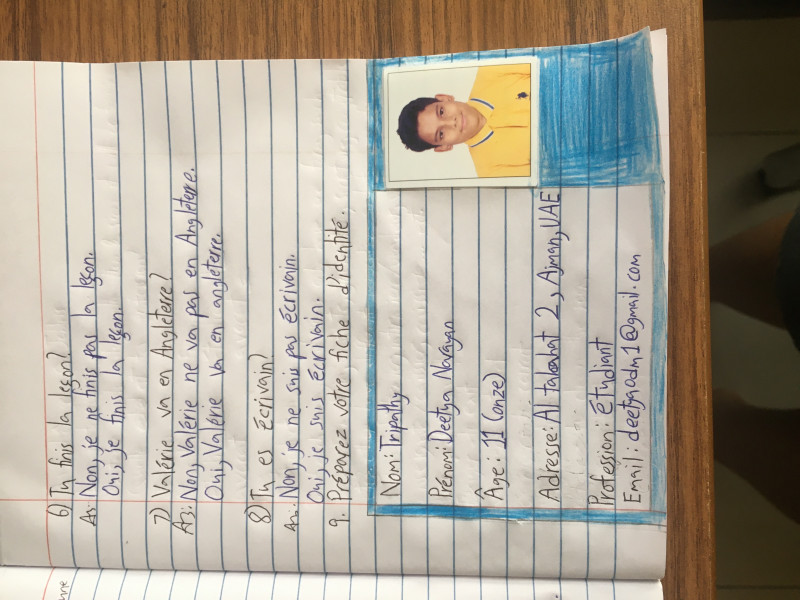 6) Tu finis la leçon?
A: Non, je ne finis pas la leçon.
Oui, je finis la leçon.
7) Valérie va en Angleterre?
A: Non, Valérie ne va pas en Angleterre.
Oui, Valérie va en angleterre.
8) Tu es écrivain?
Ans: Non, je ne suis pas écrivain.
Oui, je suis écrivain.
9. Préparez votre fiche d'identité.
Nom: Tripathy
Prénom: Deetya Narayan
Âge: 11 (onze)
Adresse: Al talaahat 2, Ajman, UAE
Profession: étudiant
Email: deetyaadm1@gmail.com